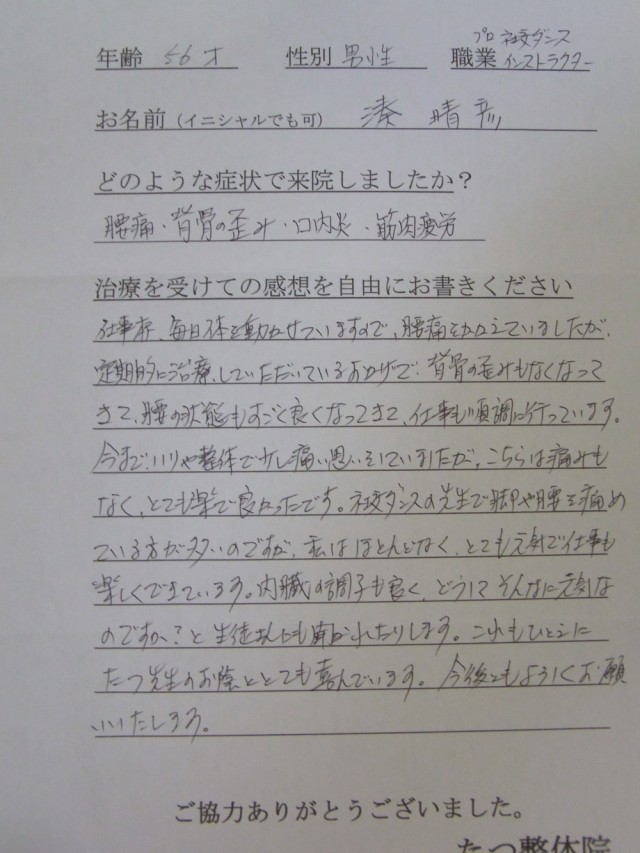 年齢 56才 性別 男性 職業 プロ社交ダンス
インストラクター
お名前（イニシャルでも可） 湊 晴彦
どのような症状で来院しましたか？
腰痛・背骨の歪み・口内炎・筋肉疲労
治療を受けての感想を自由にお書きください
仕事柄、毎日体を動かせていますので、腰痛をかかえていましたが、
定期的に治療していただいているおかげで、背骨の歪みもなくなって
きて、腰の状態もすごく良くなってきて、仕事も順調に行っています。
今まで、ハリや整体で少し痛い思いをしていましたが、こちらは痛みも
なく、とても楽で良かったです。社交ダンスの先生で脚や腰を痛め
ている方が多いのですが、私はほとんどなく、とても元気で仕事も
楽しくできています。内臓の調子も良く、どうしてそんなに元気な
のですか？と生徒さんにも聞かれたりします。これもひとえに
たつ先生のお陰ととても喜んでいます。今後ともよろしくお願
いいたします。
ご協力ありがとうございました。
たつ整体院